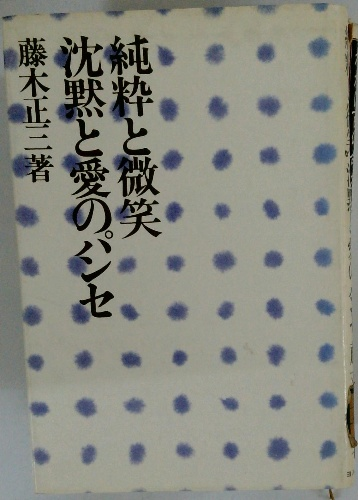 純粋と微笑
沈黙と愛のパンセ
藤木正三著